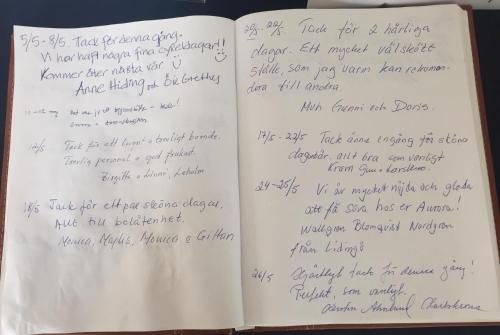 5/5-8/5. Tack för denna gång.
Vi har haft några fina cykeldagar!!
Kommer åter nästa vår
Anne Hiding och
12/5 Tack för ett lugnt o trevligt boende.
Trevlig personal o god frukost.
Birgitta o
18/5 Tack för ett par sköna dagar,
Allt till belåtenhet.
Monica, Monica o Gittan
20/5-22/5 Tack för 2 härliga
dagar. Ett mycket välskött
ställe, som jag varm kan rekomen-
dera till andra.
Mvh Gunni och Doris.
17/5-22/5 Tack ännu engång för sköna
dagar. allt bra som vanligt
Kram Gun o
24-25/5 Vi är mycket nöjda och glada
att få sova hos er Aurora!
Wallgren Blomqvist Nordgren
från Lidingö
26/5 Hjärtligt tack för denna gång!
Perfekt, som vanligt.
Kerstin